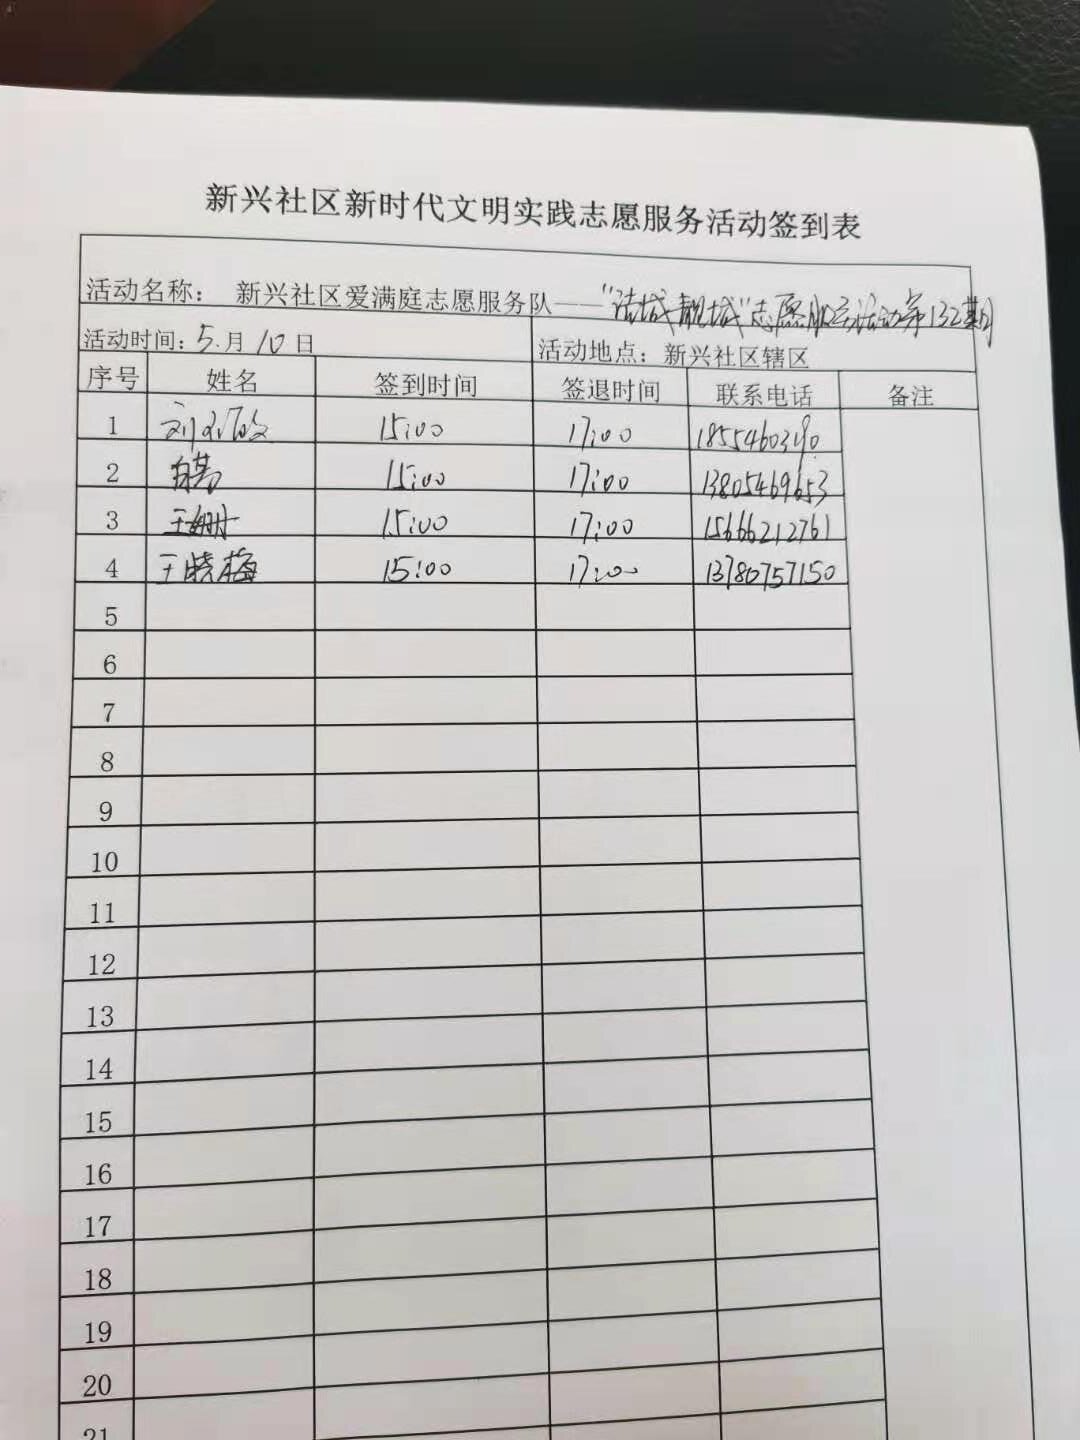 新兴社区新时代文明实践志愿服务活动签到表
活动名称： 新兴社区爱满庭志愿服务队——“洁城靓城”志愿服务活动第132期
活动时间：5.月10日 活动地点：新兴社区辖区
序号 姓名 签到时间 签退时间 联系电话 备注
1 刘 15:00 17:00
2 15:00 17:00 13805469653
3 王姗 15:00 17:00 15666212761
4 王晓梅 15:00 17:00 13780757150
5
6
7
8
9
10
11
12
13
14
15
16
17
18
19
20
21